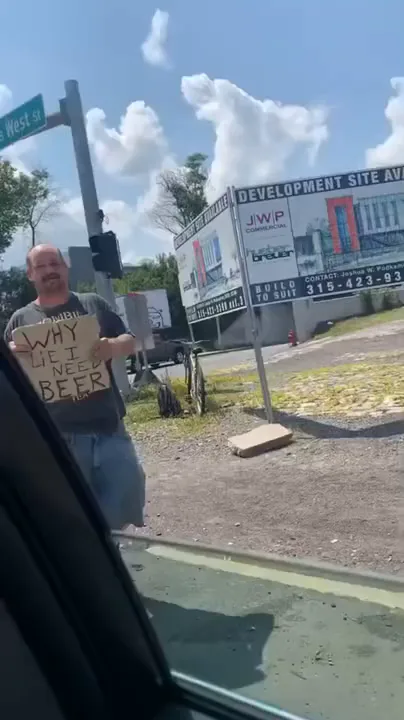 West St
WHY
LIE I
NEED
BEER
DEVELOPMENT SITE AVA
JWP
COMMERCIAL
BUILD
TO SUIT
CONTACT: Joshua W. Podka
315-423-93